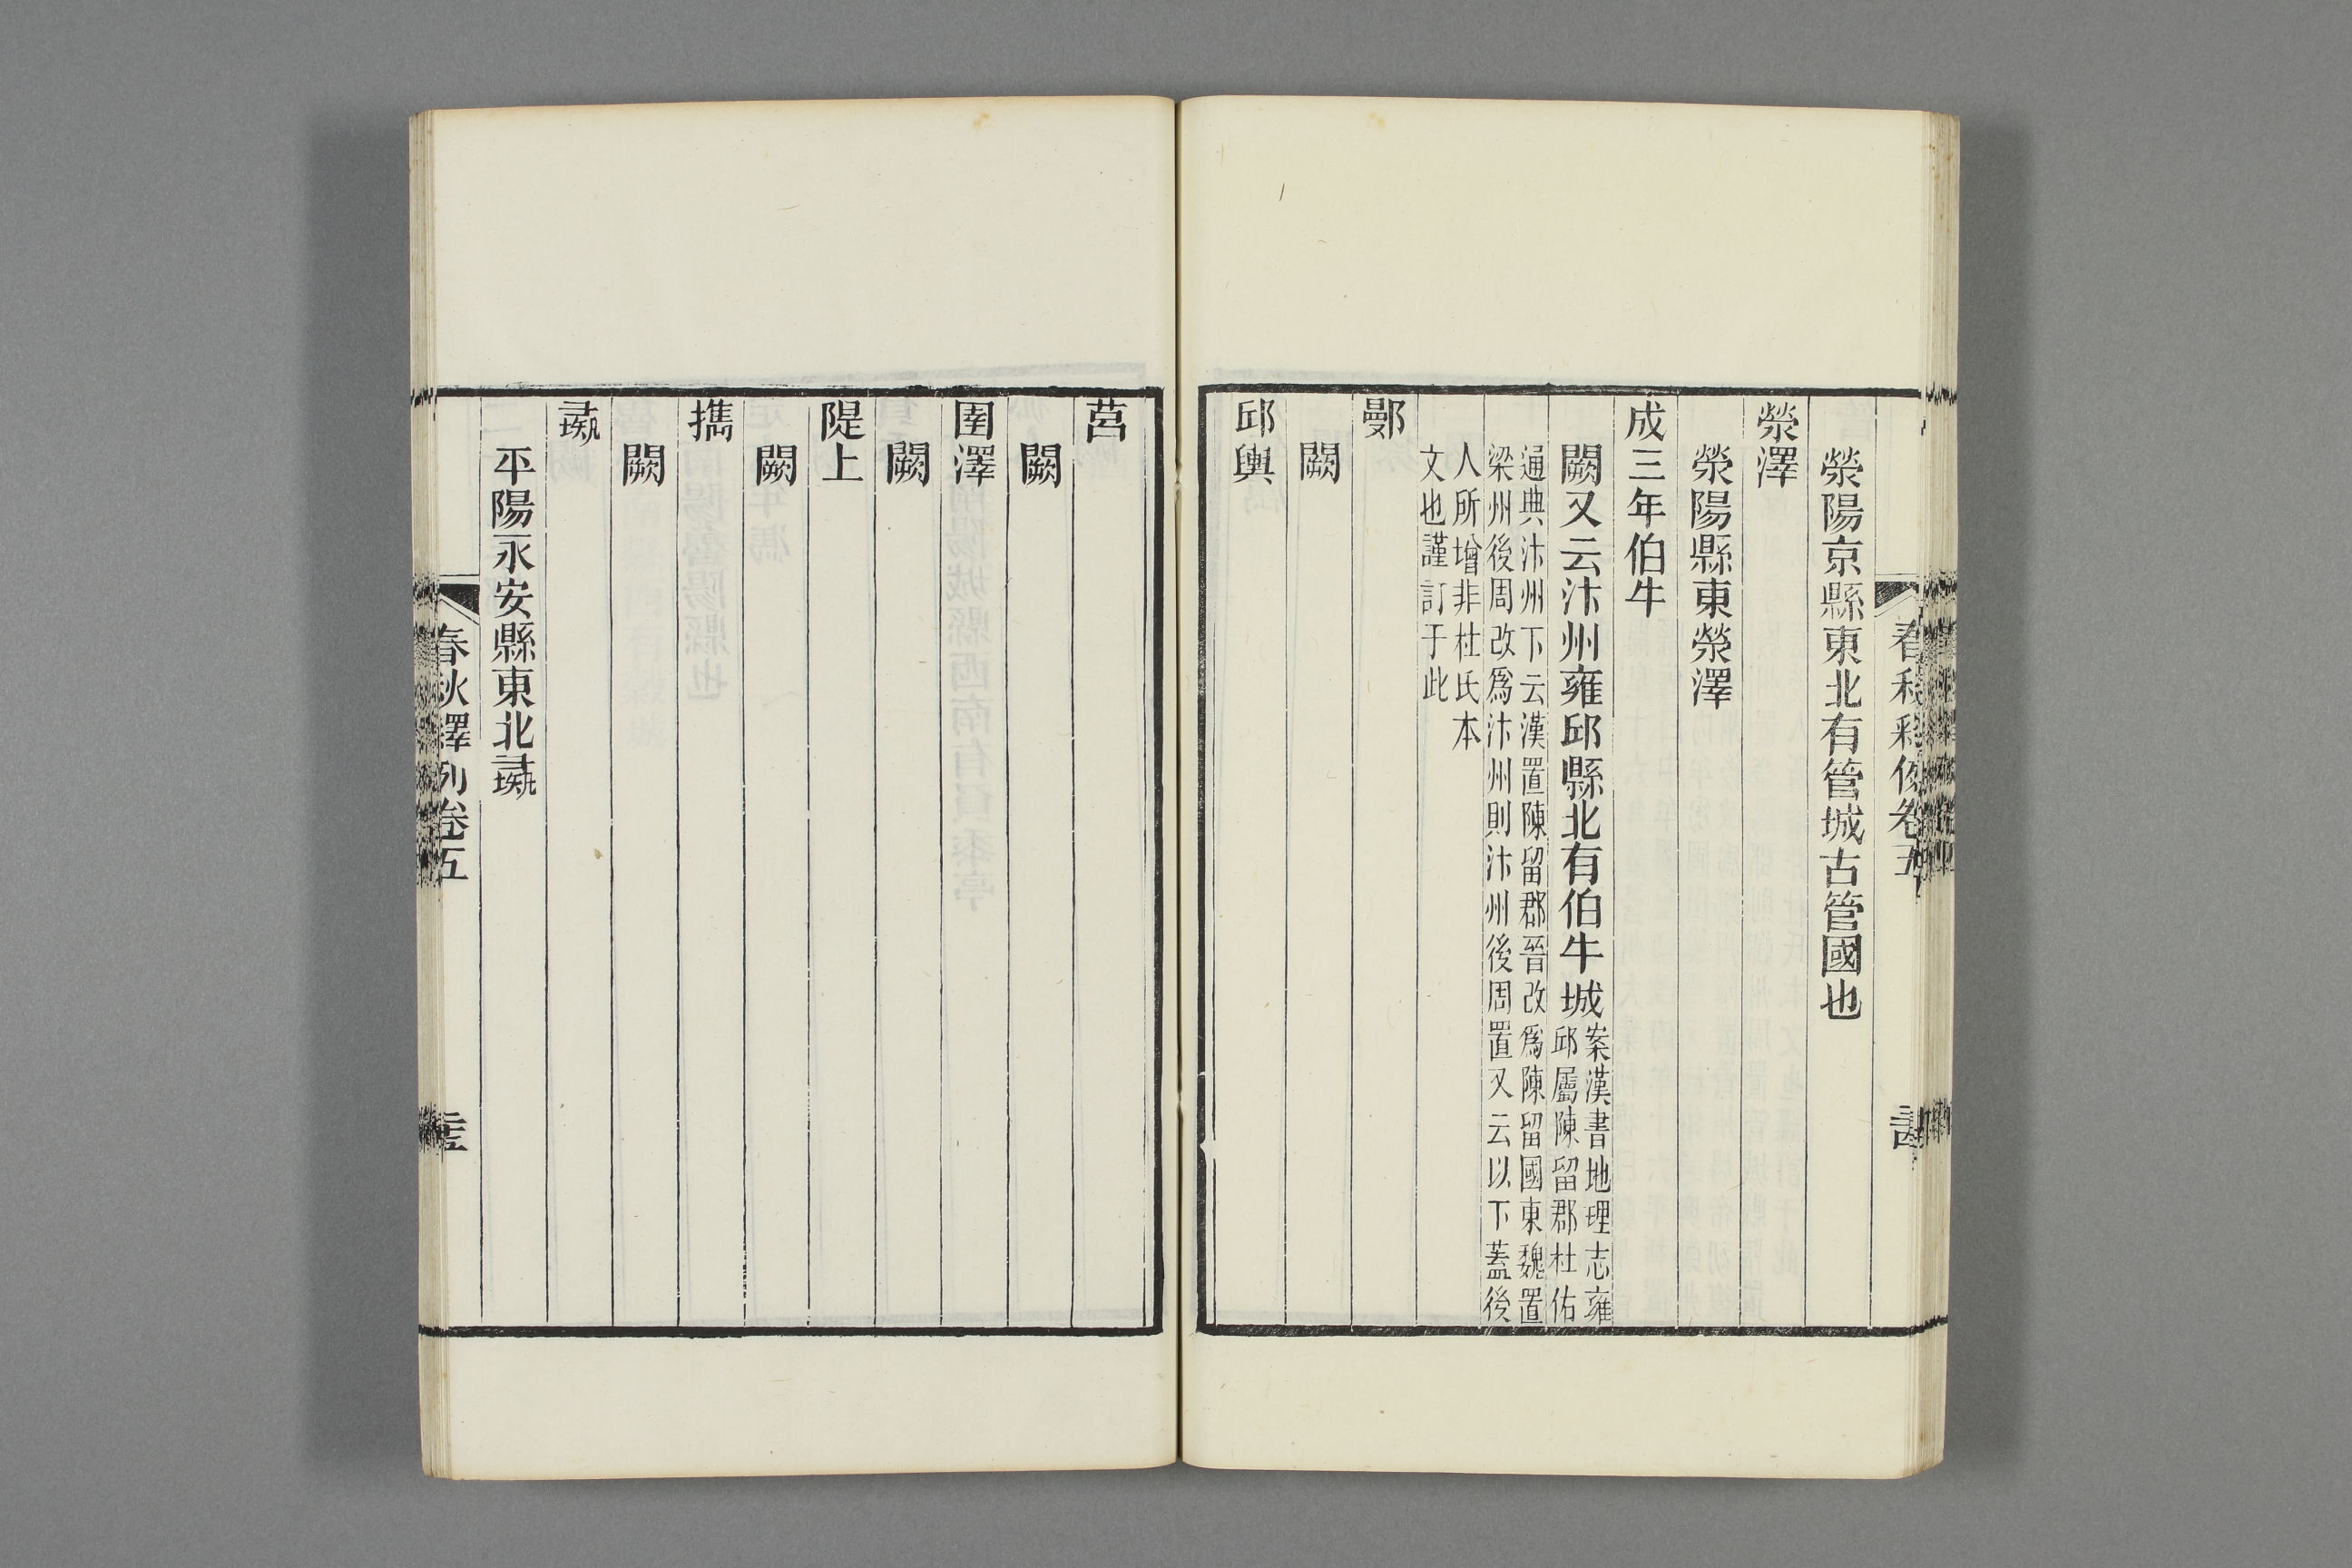 滎陽京縣東北有管城古管國也
滎澤
滎陽縣東滎澤
成三年伯牛
闕又云汴州雍邱縣北有伯牛城
案漢書地理志雍
邱屬陳留郡杜佑
通典汴州下云漢置陳留郡晉改爲陳留國東魏置
梁州後周改爲汴州則汴州後周置又云以下蓋後
人所增非杜氏本
文也謹訂于此
鄤
闕
邱輿
莒
闕
圉澤
闕
隄上
闕
攜
闕
彘
平陽永安縣東北彘
春秋釋例卷五